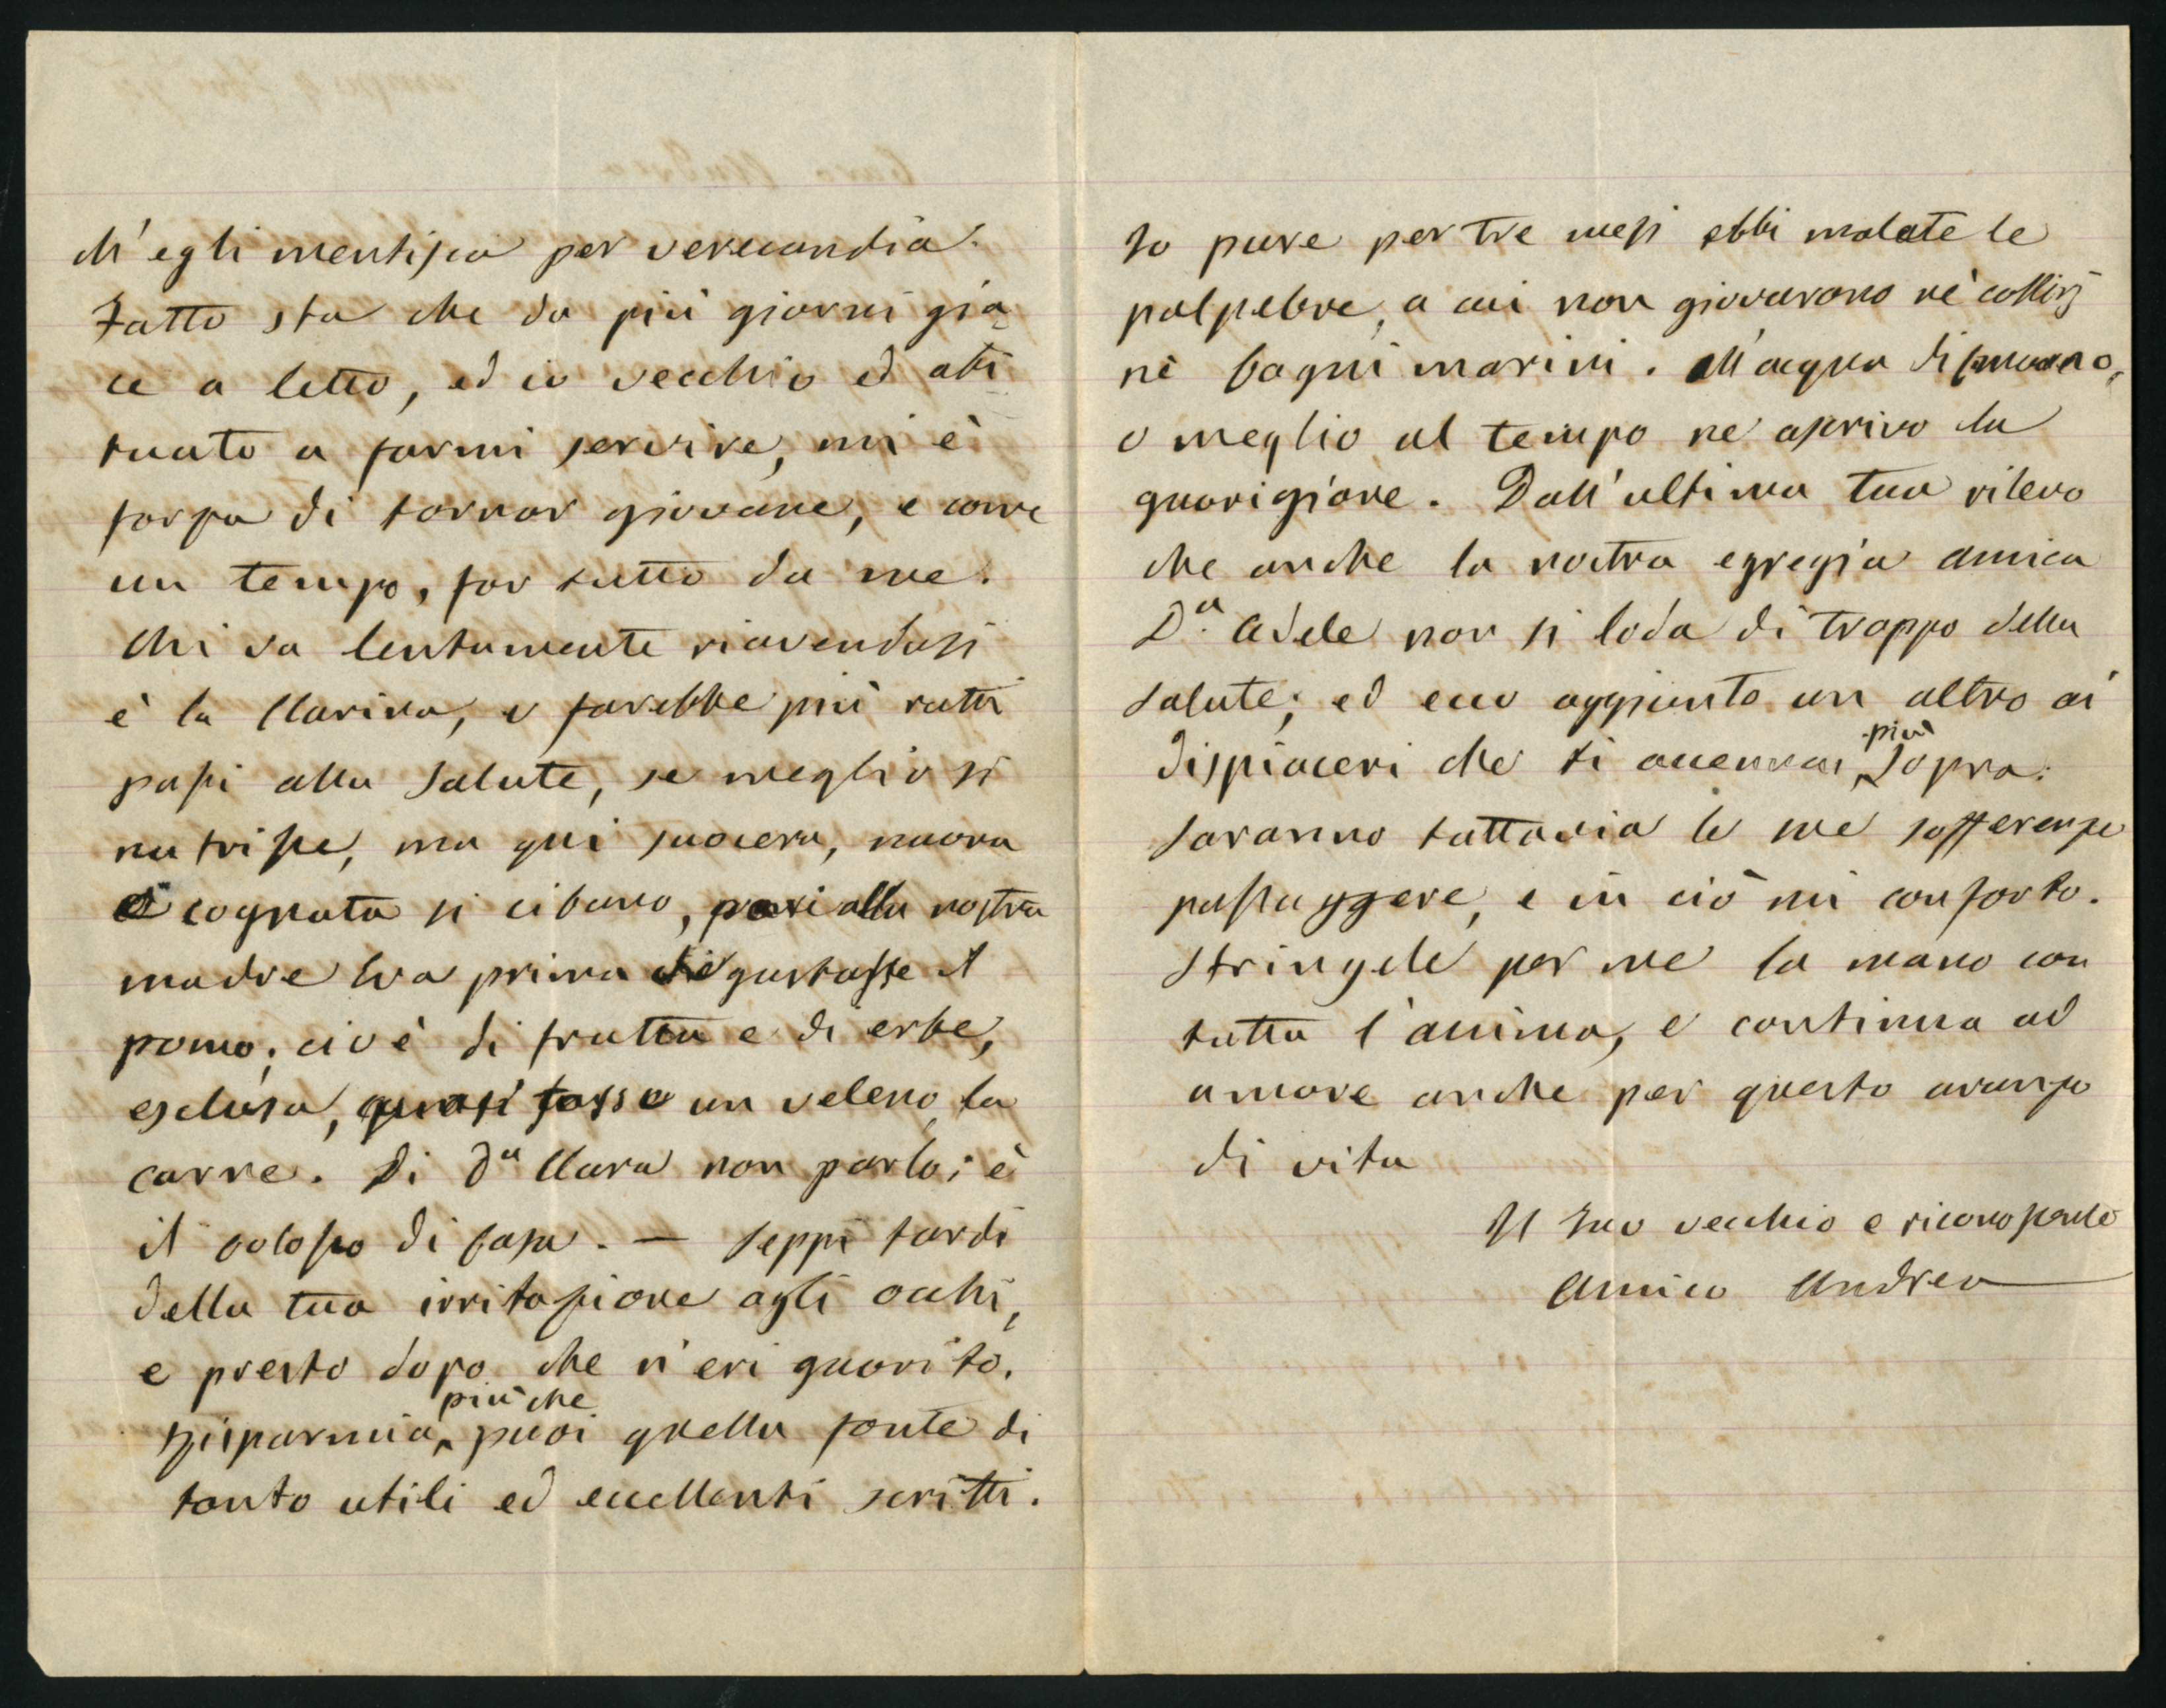 ch'egli mentisca per verecondia.
Fatto sta che da più giorni gia-
ce a letto, ed io vecchio ed abi-
tuato a farmi servire, mi è
forza di tornar giovane, e come
un tempo, far tutto da me.
Chi va lentamente riavendosi
è la Clarina, e farebbe più ratti
passi alla salute, se meglio si
nutrisse, ma qui suocera, nuora
e cognata si cibano, pari alla nostra
madre Eva prima che gustasse il
pomo, cioè di frutta e di erbe,
esclusa, quasi fosse un veleno, la
carne. Di Dª Clara non parlo; è
il colosso di casa. — Seppi tardi
della tua irritazione agli occhi,
e presto dopo che n'eri guarito.
Risparmia, più che puoi quella fonte di
tanto utili ed eccellenti scritti.
Io pure per tre mesi ebbi malate le
palpebre, a cui non giovarono nè collirj
nè bagni marini. All'acqua di
o meglio al tempo ne ascrivo la
guarigione. Dall'ultima tua rilevo
che anche la nostra egregia amica
D.ª Adele non si loda di troppo della
salute; ed ecco aggiunto un altro ai
dispiaceri che ti accennai più sopra.
Saranno tuttavia le sue sofferenze
passaggere, e in ciò mi conforto.
Stringele per me la mano con
tutta l'anima, e continua ad
amare anche per questo avanzo
di vita
Il tuo vecchio e riconoscente
Amico Andrea